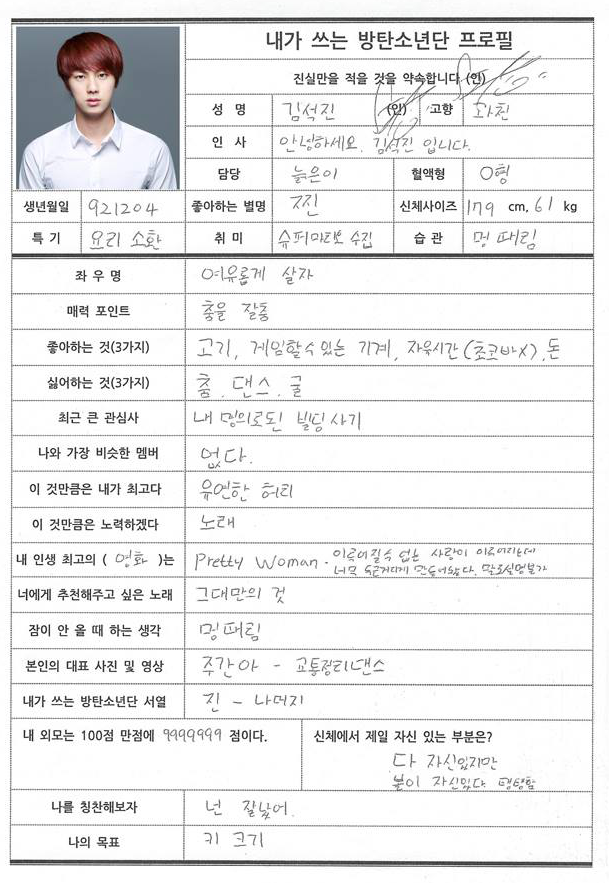 내가 쓰는 방탄소년단 프로필
진실만을 적을 것을 약속합니다 (인)
성 명 김석진 (인) 고향 과천
인 사 안녕하세요. 김석진 입니다.
담당 늙은이 혈액형 O형
생년월일 921204 좋아하는 별명 찐 신체사이즈 179 cm, 61 kg
특 기 요리 소환 취 미 슈퍼마리오 수집 습 관 멍 때림
좌 우 명 여유롭게 살자
매력 포인트 춤을 잘춤
좋아하는 것(3가지) 고기, 게임할수 있는 기계, 자유시간 (초코바X), 돈
싫어하는 것(3가지) 춤. 댄스. 굴
최근 큰 관심사 내 명의로된 빌딩사기
나와 가장 비슷한 멤버 없다.
이 것만큼은 내가 최고다 유연한 허리
이 것만큼은 노력하겠다 노래
내 인생 최고의 ( 영화 )는 Pretty Woman. 이루어질수 없는 사랑이 이루어지는데
너무 만들어놨다. 말로설명불가
너에게 추천해주고 싶은 노래 그대만의 것
잠이 안 올 때 하는 생각 멍때림
본인의 대표 사진 및 영상 주간아 - 교통정리댄스
내가 쓰는 방탄소년단 서열 진 - 나머지
내 외모는 100점 만점에 9999999 점이다.
신체에서 제일 자신 있는 부분은?
다 자신있지만
볼이 자신있다. 탱탱함
나를 칭찬해보자 넌 잘났어.
나의 목표 키 크기